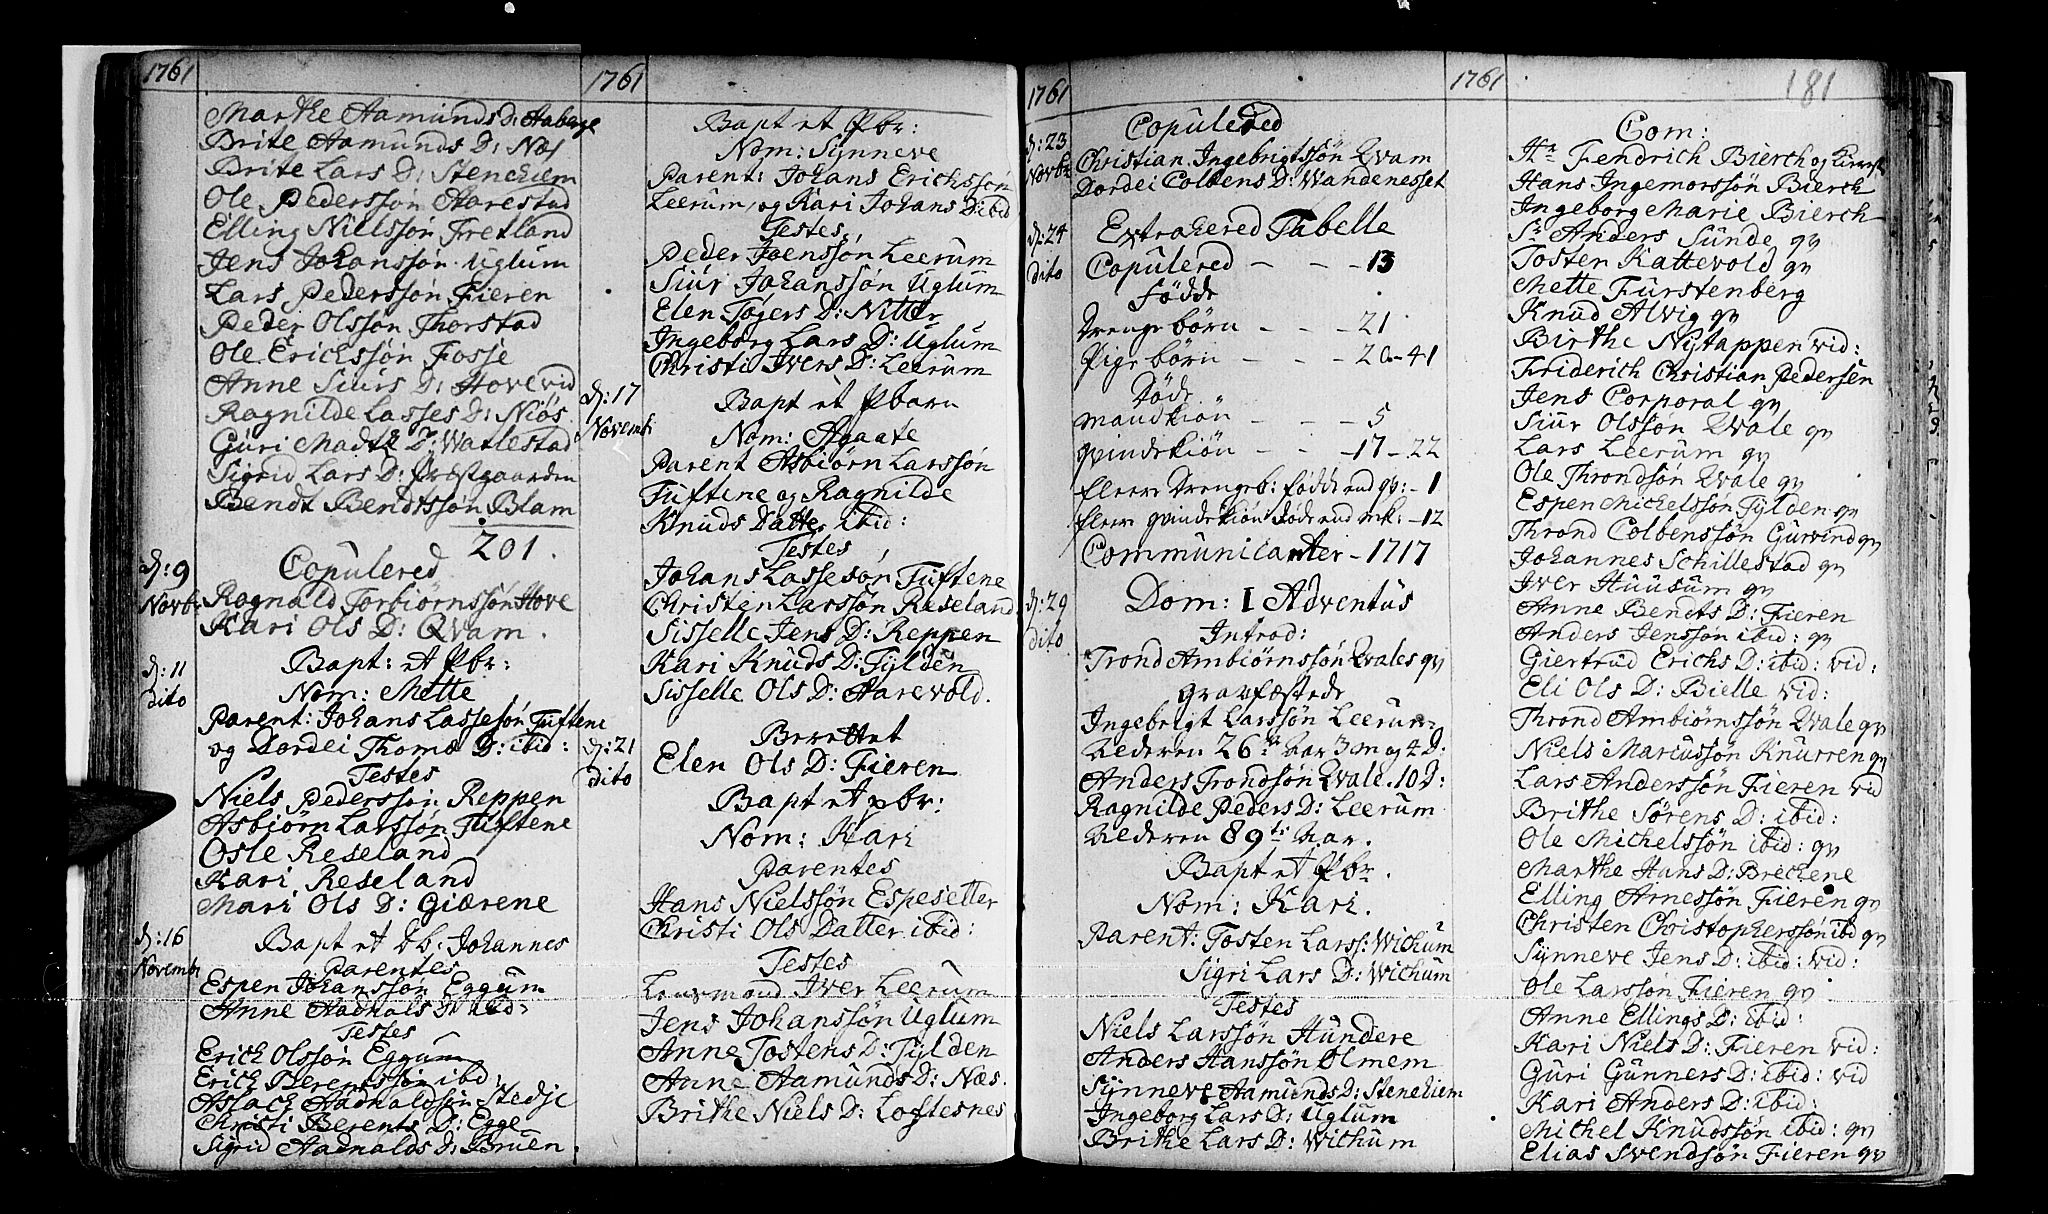 1761
Marthe Aamunds D: Aaberge
Brite Aamunds D: Næs
Brite Lars D: Stenehiem
Ole Pedersson Aarestad
Elling Nielssøn Fretland
Jens Johanssøn Uglum
Lars Pederssøn Fieren
Peder Olssøn Thorstad
Ole Erichssøn Fosse
Anne Siurs D: Hove vid
Ragnilde Lasses D: Niøs
Guri Madtz D: Watlestad
Sigrid Lars D: Præstgaarden
Bendt Bendtssøn Blam
201.
d: 9 Novbr
Copulered
Ragnald Torbiørnssøn Hove
Kari Ols D: Qvam.
d: 11 dito
Bapt: et Pbr:
Nom: Mette
Parent: Johans Lassesøn Tuftene
og Dordei Thomæ D: ibid:
Testes
Niels Pederssøn Reppen
Asbiørn Larssøn Tuftene
Osle Reseland
Kari Reseland
Mari Ols D: Giærene
d: 16 Novembr
Bapt et bb: Johannes
Parentes
Espen Johanssøn Eggum
Anne Aadnals D: ibid:
Testes
Erich Olssøn Eggum
Erich Berentssøn ibd:
Aslach Aadnaldsøn Stedje
Christi Berents D: Egge
Sigrid Aadnalds D: Bruen.
1761
Bapt et Pbr:
Nom: Synneve
Parent: Johans Erichssøn
Leerum, og Kari Johans D: ibid
Testes,
Peder Joenssøn Leerum
Siur Johanssøn Uglum
Elen Tøgers D: Nitter
Ingeborg Lars D: Uglum
Christi Ivers D: Leerum
d: 17 Novembr
Bapt et Pbarn
Nom: Agaate
Parent Asbiørn Larssøn
Tuftene og Ragnilde
Knuds Datter ibid:
Testes
Johans Lassesøn Tuftene
Christen Larssøn Reseland
Sisselle Jens D: Reppen
Kari Knuds D: Tylden
Sisselle Ols D: Harevold.
d: 21 dito
Berettet
Elen Ols D: Fieren
Bapt et pbr:
Nom: Kari
Parentes
Hans Nielssøn Espesetter
Christi Ols Datter ibid:
Testes
Lensmand Iver Leerum
Jens Johanssøn Uglum
Anne Tostens D: Tylden
Anne Aamunds D: Næs.
Brithe Niels D: Loftesnes
1761
d: 23 Novbr
Copulered
Christian Ingebrigtssøn Qvam
Dordei Colbens D: Wandenesset
d: 24 dito
Extrahered Tabelle
Copulered - - - 13
Fødde
Drenge børn - - - 21
Pige børn - - - 20 - 41
Døde
mandkiøn - - - 5
qvindekiøn - - - 17 - 22
fleere Drengeb: fødde end qv: - 1
fleere qvindekiøn døde end mk: - 12
Communicanter - 1717
d: 29 dito
Dom: 1 Adventus
Introd:
Trond Ambiørnssøn Qvales qv
Gravfæstede
Ingebrigt Larssøn Leerum
Alderen 26 Aar 3 m og 4 D:
Anders Trondsøn Qvale. 10 D:
Ragnilde Peders D: Leerum
Alderen 89 Aar.
Bapt et Pbr.
Nom: Kari.
Parent: Tosten Larss: Withum
Sigri Lars D: Withum
Testes
Niels Larssøn Hundere
Anders Hanssøn Olmem
Synneve Aamunds D: Stenehiem
Ingeborg Lars D: Uglum
Brithe Lars D: Withum
1761
181
Com:
Hr Fendrich Bierch og Kiereste
Hans Ingemorssøn Bierch
Ingeborg Marie Bierch
Sr Anders Sunde qv
Tosten Kattevold qv
Mette Furstenberg
Knud Alvig qv
Birthe Nytappen vid:
Friderich Christian Pedersen
Jens Corporal qv
Siur Olssøn Qvale qv
Lars Leerum qv
Ole Throndsøn Qvale qv
Espen Michelssøn Tylden qv
Thrond Colbenssøn Gurvind qv
Johannes Schillestad qv
Iver Huusum qv
Anne Bendts D: Fieren
Anders Jenssøn ibid: qv
Giertrud Erichs D: ibid: vid:
Eli Ols D: Bielle vid:
Thrond Ambiørnssøn Qvale qv
Niels Mariussøn Knurren qv
Lars Anderssøn Fieren vid
Brithe Sørens D: ibid:
Ole Michelssøn ibid: qv
Marthe Hans D: Brechene
Elling Arnessøn Fieren qv
Christen Christopherssøn ibd qv
Synneve Jens D: ibid: vid:
Ole Larssøn Fieren qv
Anne Ellings D: ibid:
Kari Niels D: Fieren vid:
Guri Gunners D: ibid: vid
Kari Anders D: ibid:
Michel Knudssøn ibid: qv
Elias Svendsøn Fieren qv